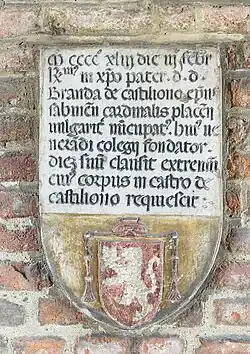 M CCCC XLIII die III febr
R̅mus in xp̄o pater. d. d
Branda de castiliono ep̄us
sabineñ cardinalis placeñ
vulgarit nūcupatꝰ. huiꝰ ve
nerādi colegij fondator.
diez suuȝ clausit extremū
cuiꝰ corpus in castro de
castiliono requiescit.